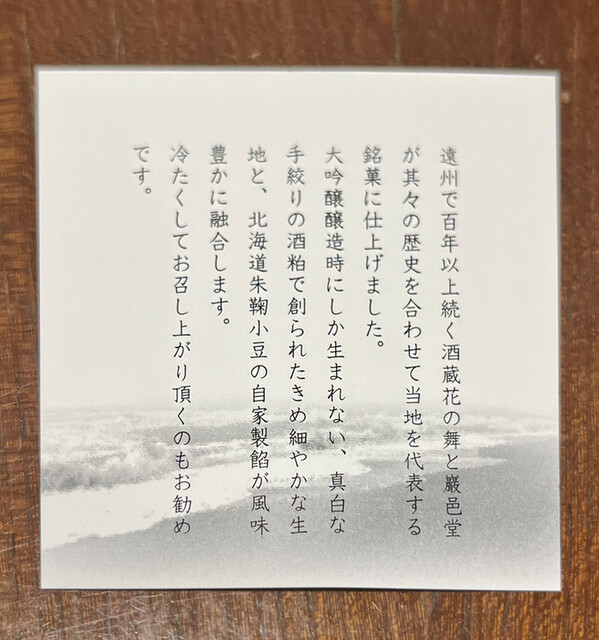 遠州で百年以上続く酒蔵花の舞と巖邑堂
が其々の歴史を合わせて当地を代表する
銘菓に仕上げました。
大吟醸醸造時にしか生まれない、真白な
手絞りの酒粕で創られたきめ細やかな生
地と、北海道朱鞠小豆の自家製餡が風味
豊かに融合します。
冷たくしてお召し上がり頂くのもお勧め
です。